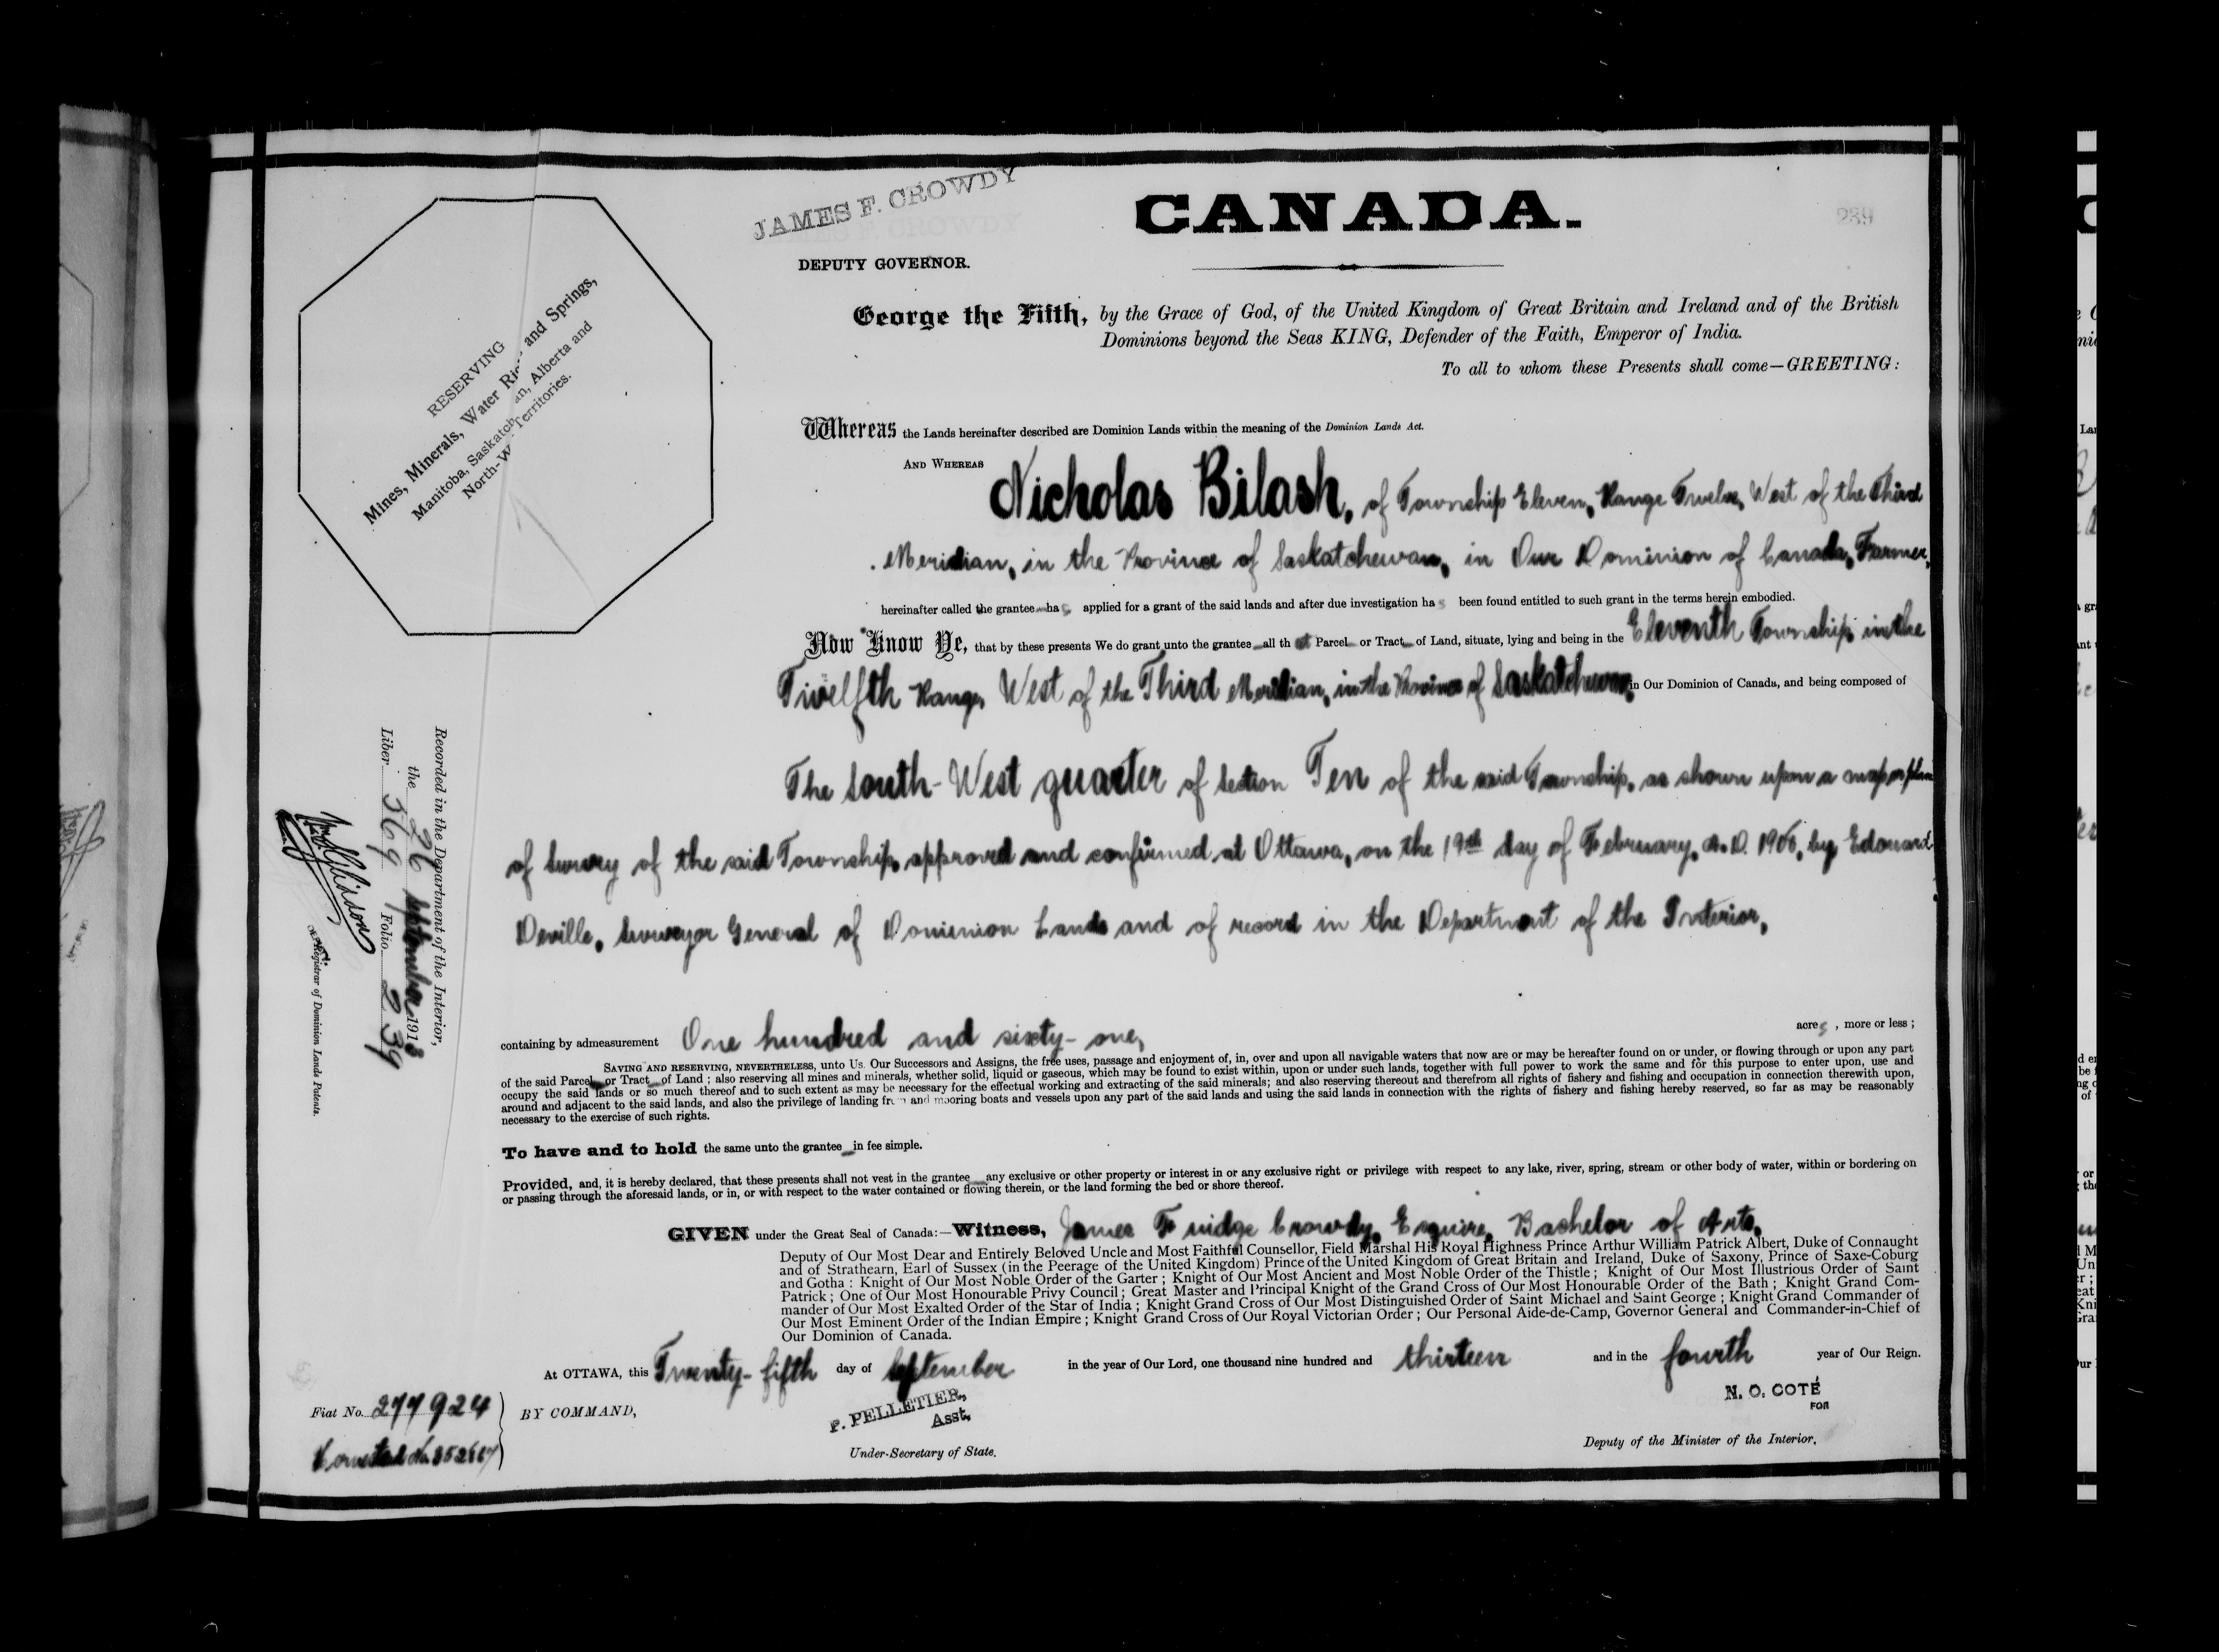 JAMES F. CROWDY
DEPUTY GOVERNOR.
CANADA.
239
George the Fifth, by the Grace of God, of the United Kingdom of Great Britain and Ireland and of the British
Dominions beyond the Seas KING, Defender of the Faith, Emperor of India.
To all to whom these Presents shall come—GREETING:
RESERVING
Mines, Minerals, Water Rig and Springs,
Manitoba, Saskatch an, Alberta and
North-W Territories.
Whereas the Lands hereinafter described are Dominion Lands within the meaning of the Dominion Lands Act.
AND WHEREAS Nicholas Bilash, of Township Eleven, Range Twelve, West of the Third
Meridian, in the Province of Saskatchewan, in Our Dominion of Canada, Farmer,
hereinafter called the grantee has applied for a grant of the said lands and after due investigation has been found entitled to such grant in the terms herein embodied.
Now Know Ye, that by these presents We do grant unto the grantee all that Parcel or Tract of Land, situate, lying and being in the Eleventh Township in the
Twelfth Range, West of the Third Meridian, in the Province of Saskatchewan, in Our Dominion of Canada, and being composed of
The South-West quarter of Section Ten of the said Township, as shown upon a map or plan
of Survey of the said Township, approved and confirmed at Ottawa, on the 19th day of February, A.D. 1906, by Edouard
Deville, Surveyor General of Dominion Lands and of record in the Department of the Interior,
containing by admeasurement One hundred and sixty-one, acres, more or less;
SAVING AND RESERVING, NEVERTHELESS, unto Us. Our Successors and Assigns, the free uses, passage and enjoyment of, in, over and upon all navigable waters that now are or may be hereafter found on or under, or flowing through or upon any part
of the said Parcel or Tract of Land; also reserving all mines and minerals, whether solid, liquid or gaseous, which may be found to exist within, upon or under such lands, together with full power to work the same and for this purpose to enter upon, use and
occupy the said lands or so much thereof and to such extent as may be necessary for the effectual working and extracting of the said minerals; and also reserving thereout and therefrom all rights of fishery and fishing and occupation in connection therewith upon,
around and adjacent to the said lands, and also the privilege of landing from and mooring boats and vessels upon any part of the said lands and using the said lands in connection with the rights of fishery and fishing hereby reserved, so far as may be reasonably
necessary to the exercise of such rights.
To have and to hold the same unto the grantee in fee simple.
Provided, and, it is hereby declared, that these presents shall not vest in the grantee any exclusive or other property or interest in or any exclusive right or privilege with respect to any lake, river, spring, stream or other body of water, within or bordering on
or passing through the aforesaid lands, or in, or with respect to the water contained or flowing therein, or the land forming the bed or shore thereof.
GIVEN under the Great Seal of Canada:—Witness, James Fuidge Crowdy, Esquire, Bachelor of Arts,
Deputy of Our Most Dear and Entirely Beloved Uncle and Most Faithful Counsellor, Field Marshal His Royal Highness Prince Arthur William Patrick Albert, Duke of Connaught
and of Strathearn, Earl of Sussex (in the Peerage of the United Kingdom) Prince of the United Kingdom of Great Britain and Ireland, Duke of Saxony, Prince of Saxe-Coburg
and Gotha: Knight of Our Most Noble Order of the Garter; Knight of Our Most Ancient and Most Noble Order of the Thistle; Knight of Our Most Illustrious Order of Saint
Patrick; One of Our Most Honourable Privy Council; Great Master and Principal Knight of the Grand Cross of Our Most Honourable Order of the Bath; Knight Grand Com-
mander of Our Most Exalted Order of the Star of India; Knight Grand Cross of Our Most Distinguished Order of Saint Michael and Saint George; Knight Grand Commander of
Our Most Eminent Order of the Indian Empire; Knight Grand Cross of Our Royal Victorian Order; Our Personal Aide-de-Camp, Governor General and Commander-in-Chief of
Our Dominion of Canada.
At OTTAWA, this Twenty-fifth day of September in the year of Our Lord, one thousand nine hundred and thirteen and in the fourth year of Our Reign.
Fiat No. 277924
BY COMMAND,
P. PELLETIER,
Asst.
Under-Secretary of State.
N. O. COTÉ
FOR
Deputy of the Minister of the Interior.
Homestead No.
Recorded in the Department of the Interior,
the 26 September 1913
Liber 369 Folio 239
Registrar of Dominion Lands Patents.